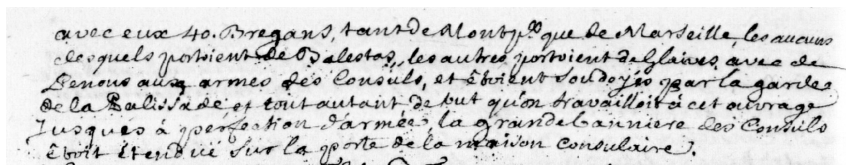 avec eux 40. Bregans, tant de Montp.er que de Marseille, les aucuns
desquels portoient de Balestas, les autres portoient de Glaives, avec de
Penons aux armes des Consuls, et étoient soudoyés par la garde
de la Palissade et tout autant de tut qu'on travailloit à cet ouvrage
Jusques à perfection d'armée la grande banniere des Consuls
étoit étendue sur la porte de la maison consulaire.